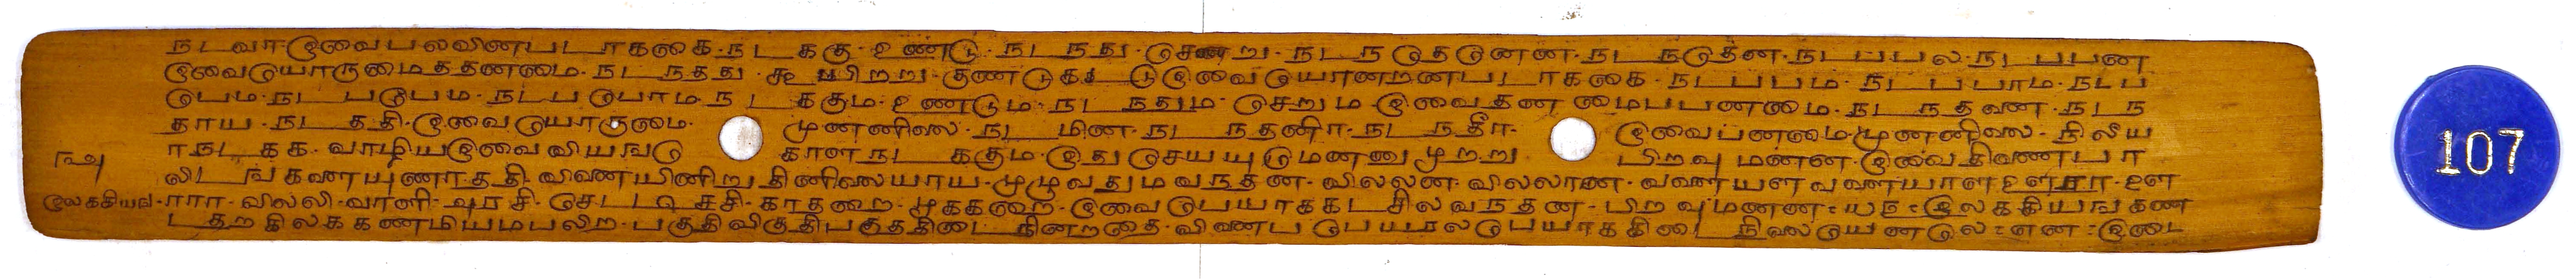 நடவா இவை பலவினபடாககை. நடககு. உணடு. நடநது. சென்று. நடநதெனன. நடநதென. நடபபல. நடபபன
இவை யொருமைததனமை. நடநதது. கூயிறறு. குணடுகட டிவை யொனறனபடாககை. நடபபம. நடபபாம. நடப
பெம. நடபபெம. நடபபொம. நடககும. உணடும. நடநதும. சேறும. இவை தன மைபபனமை. நடநதனை. நடந
தாய. நடததி. இவை யொருமை. முனனிலை. நடமின. நடநதனிர. நடநதீர. இவை பனமை முனனிலை. நிலீய
ர நடகக. வாழிய இவை வியஙகொ காள நடககும. இது செயயுமென்னு முறறு. பிறவு மனன. இவை தினைபா
லிடஙகளை யுணரததி. வினையினிறு தினிலையாய. முழுவதும வநதன. விலலன. விலலான. வளையள வளையாள உளரா. உள
இலககியல. ரார. விலலி. வாளி. ஷரசி. செடடிசசி. காதறை. மூககறை. இவை பெயராககடசில வநதன. பிறவுமனன: யரு: இலககியஙகண
டதற கிலககணமியமபலிற. பகுதி விகுதி பகுததிடை நினறதை. வினைபபெயரல பெயரககிடை நிலையெனலெ: என: இடை
107